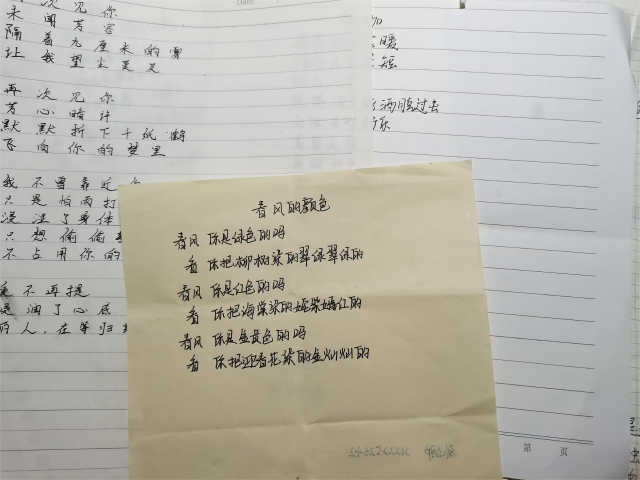 次见你
未闻芳容
隔着九厘米的雾
让我望尘莫及
再次见你
芳心暗许
默默折下千纸鹤
飞向你的梦里
我不曾靠近
只是怕雨打
浸湿了身体
只想偷偷
不占用你的
是不再提
是润了心底
的人，在等归
暖
短
洒脱过去
乐
春风的颜色
春风 你是绿色的吗
看 你把柳树染的翠绿翠绿的
春风 你是红色的吗
看 你把海棠染的嫣紫嫣红的
春风 你是金黄色的吗
看 你把迎春花染的金灿灿的
第 页